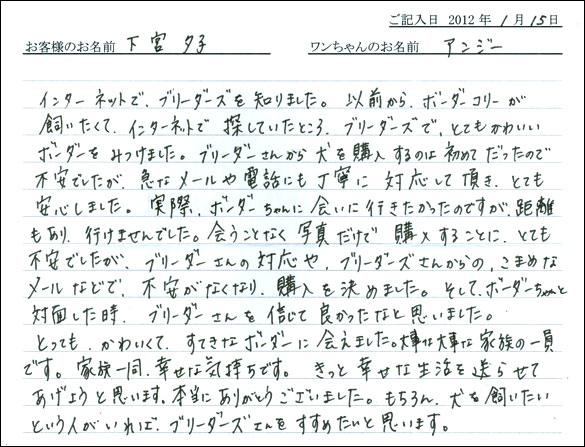 ご記入日 2012年 1月 15日
お客様のお名前 下宮 夕子 ワンちゃんのお名前 アンジー
インターネットで、ブリーダーズを知りました。以前から、ボーダーコリーが
飼いたくて、インターネットで 探していたところ、ブリーダーズで、とてもかわいい
ボーダーをみつけました。ブリーダーさんから犬を購入するのは初めてだったので
不安でしたが、急なメールや電話にも丁寧に 対応して頂き、とても
安心しました。実際、ボーダーちゃんに会いに行きたかったのですが、距離
もあり、行けませんでした。会うことなく写真だけで 購入することに、とても
不安でしたが、ブリーダーさんの対応や、ブリーダーズさんからの、こまめな
メールなどで、不安がなくなり、購入を決めました。そして、ボーダーちゃんと
対面した時、ブリーダーさんを信じて良かったなと思いました。
とっても、かわいくて、すてきなボーダーに会えました。大事な大事な家族の一員
です。家族一同、幸せな気持ちです。きっと幸せな生活を送らせて
あげようと思います。本当にありがとうございました。もちろん、犬を飼いたい
という人がいれば、ブリーダーズさんをすすめたいと思います。